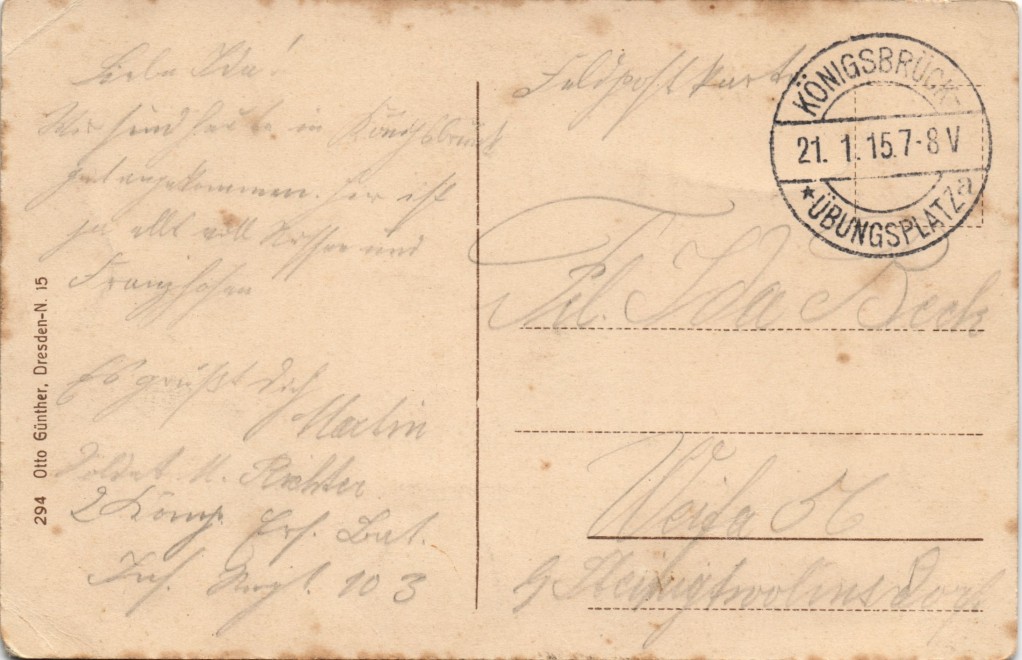 Liebe Ida!
Wir sind heute in Königsbrück
gut angekommen. hir ist
ja alles voll Russen und
Franzhosen
Es grüßt dich
Martin
Soldat M. Richter
2 Komp. Ers. Bat.
Inf. Regt. 103
Feldpostkarte
KÖNIGSBRÜCK-
21. 1. 15. 7-8 V
* ÜBUNGSPLATZ a
Frl. Ida Beck
Weifa 56
b Steinigtwolmsdorf
294 Otto Günther, Dresden-N. 15